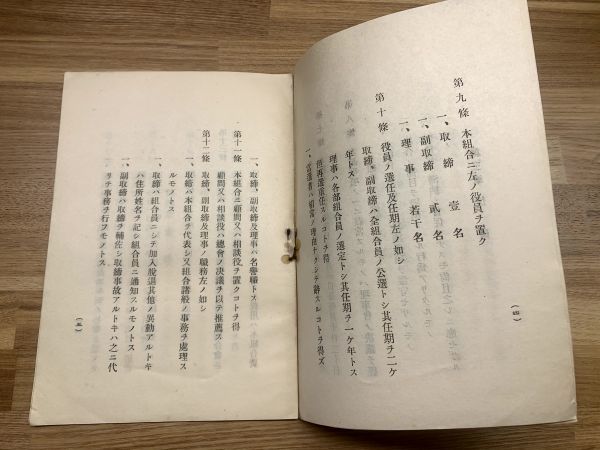 第九條 本組合ニ左ノ役員ヲ置ク
一、取締 壹名
一、副取締 貳名
一、理事 若干名
第十條 役員ノ選任及任期左ノ如シ
取締、副取締ハ全組合員ノ公選トシ其任期ヲ二ケ
年トス
理事ハ各部組合員ノ選定トシ其任期ヲ一ケ年トス
但再選重任スルコトヲ得
一、當選者ハ相當ノ理由ナクシテ辭スルコトヲ得ズ
(四)
一、取締、副取締及理事ハ名譽職トス
第十一條 本組合ニ顧問又ハ相談役ヲ置クコトヲ得
顧問又ハ相談役ハ總會ノ決議ヲ以テ推薦ス
第十二條 取締、副取締及理事ノ職務左ノ如シ
一、取締ハ本組合ヲ代表シ又組合諸般ノ事務ヲ處理ス
ルモノトス
一、取締ハ組合員ニシテ加入脫退其他ノ異動アルトキ
ハ住所姓名ヲ記シ組合員ニ通知スルモノトス
一、副取締ハ取締ヲ補佐シ取締事故アルトキハ之ニ代
リテ事務ヲ行フモノトス
(五)